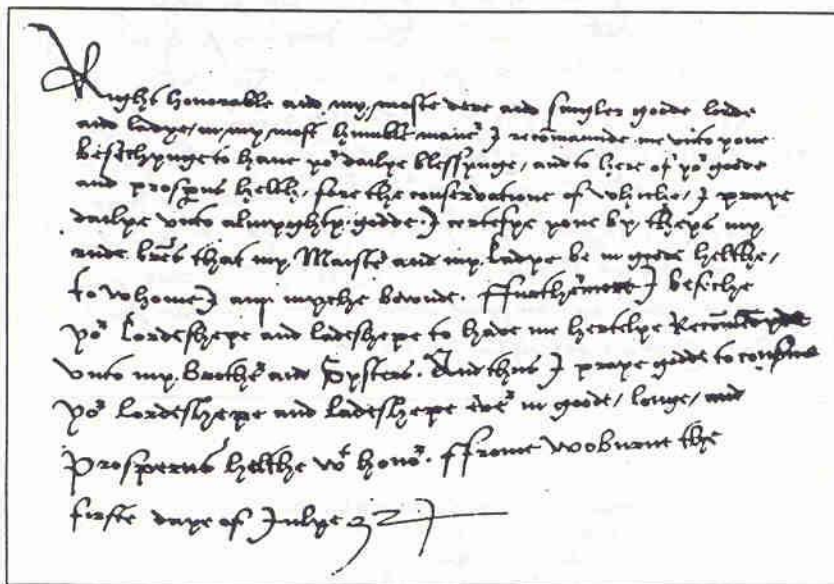 Right honorable and my moste dere and singler goode lorde
and ladye / in my most humble man̄er I recōmaunde me unto youe
besechynge to haue yor dailye blessynge / and to here of yor goode
and prosp̱us helth / fore the conservatione of whiche / I praye
dailye unto almyghty godde I certefye youe by theys my
rude l̄res that my Maister and my Ladye be in goode helthe /
to whome I am myche bounde. ffurthermore I beseche
yor Lordeshepe and ladeshepe to have me hertelye
unto my Brother and Systers. And thus I praye godde to conserve
yor Lordeshepe and ladeshepe ever in goode / longe / and
Prosperus helthe wt honor. ffrome Woburne the
firste daye of Julye